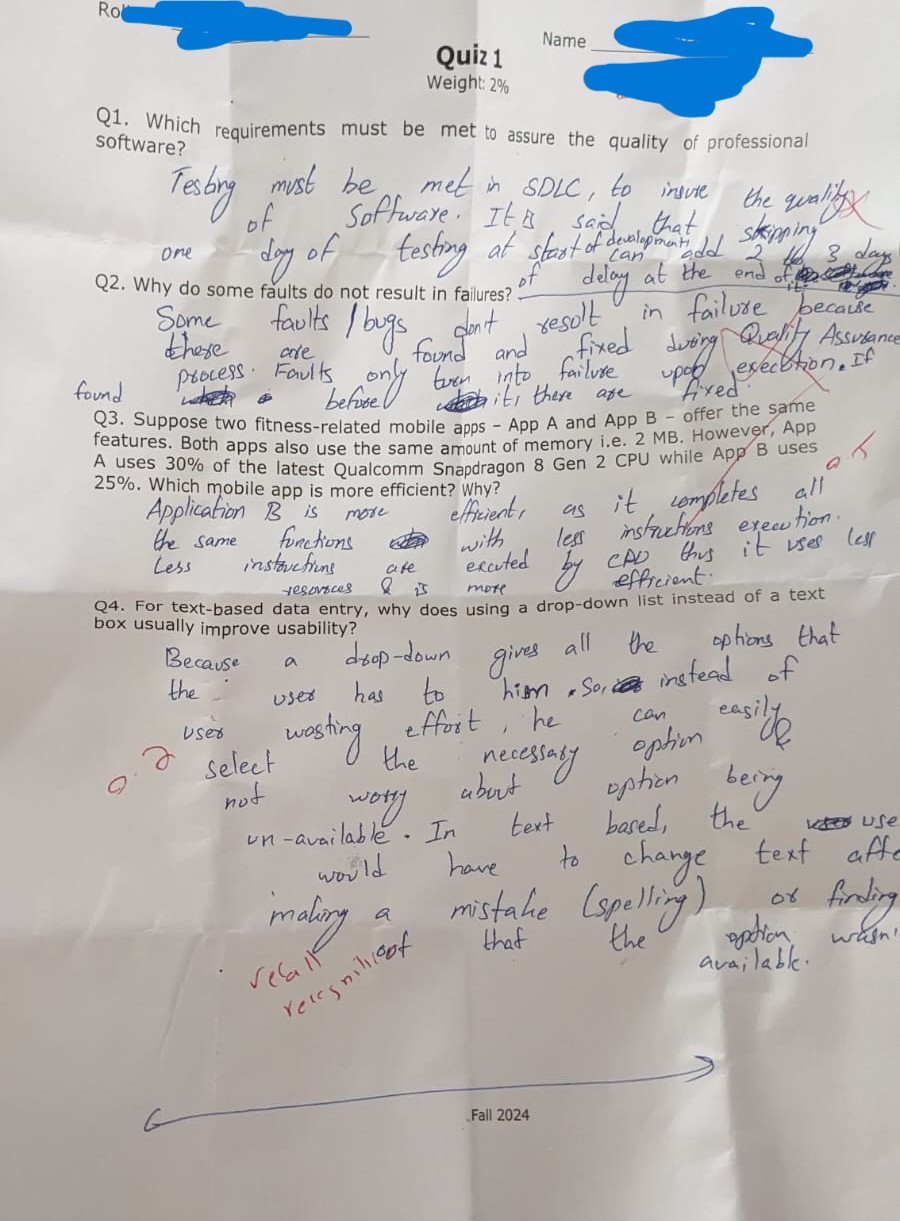 Rol
Name
Quiz 1
Weight: 2%
Q1. Which requirements must be met to assure the quality of professional
software?
Testing must be met in SDLC, to insure the quality
of Software. It is said that skipping
one day of testing at start of development can add 2 to 3 days
of delay at the end of it.
Q2. Why do some faults do not result in failures?
Some faults / bugs don't result in failure because
these are found and fixed during Quality Assurance
process. Faults only turn into failure upon execution. If
found before it, there are fixed.
Q3. Suppose two fitness-related mobile apps – App A and App B – offer the same
features. Both apps also use the same amount of memory i.e. 2 MB. However, App
A uses 30% of the latest Qualcomm Snapdragon 8 Gen 2 CPU while App B uses
25%. Which mobile app is more efficient? Why?
Application B is more efficient, as it completes all
the same functions with less instructions execution.
Less instructions are excuted by CPU thus it uses less
resources & is more efficient.
Q4. For text-based data entry, why does using a drop-down list instead of a text
box usually improve usability?
Because a drop-down gives all the options that
the user has to him. So, instead of
user wasting effort, he can easily
0.2
select the necessary option &
not worry about option being
un-available. In text based, the use
would have to change text afte
making a mistake (spelling) or finding
out that the option wasn'
available.
recall
Fall 2024